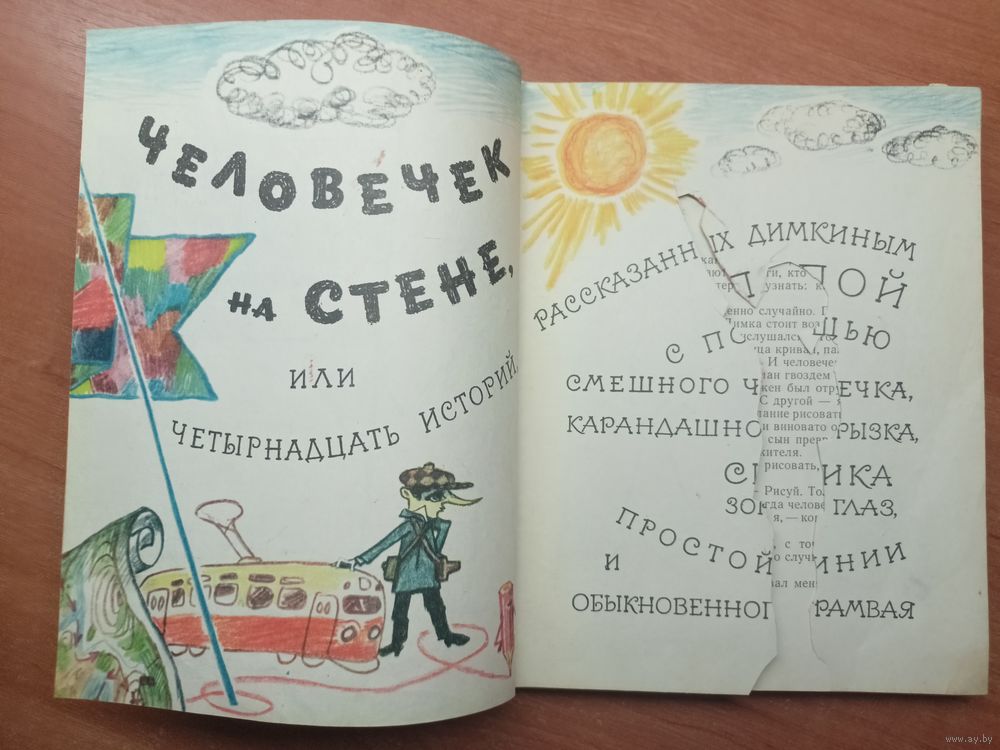 ЧЕЛОВЕЧЕК
НА СТЕНЕ,
ИЛИ
ЧЕТЫРНАДЦАТЬ ИСТОРИЙ,
РАССКАЗАНН ЫХ ДИМКИНЫМ
П ПОЙ
С ПО ЩЬЮ
СМЕШНОГО Ч ЕЧКА,
КАРАНДАШНО РЫЗКА,
С ИКА
ЗО ГЛАЗ,
ПРОСТОЙ ИНИИ
И
ОБЫКНОВЕННОГ РАМВАЯ
ти, кто
узнать: к
енно случайно.
Димка стоит воз
слушалс
ца кривая, па
И человече
ман гвоздем
жен был отру
С другой —
лание рисоват
и виновато о
сын прев
жителя.
рисовать,
— Рисуй. То
гда челове
я, — ко
, с то
о случ
вал мен
www.ay.by